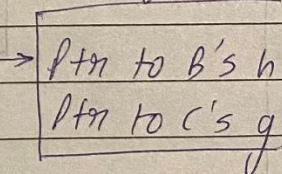 Ptr to B's h
Ptr to C's g